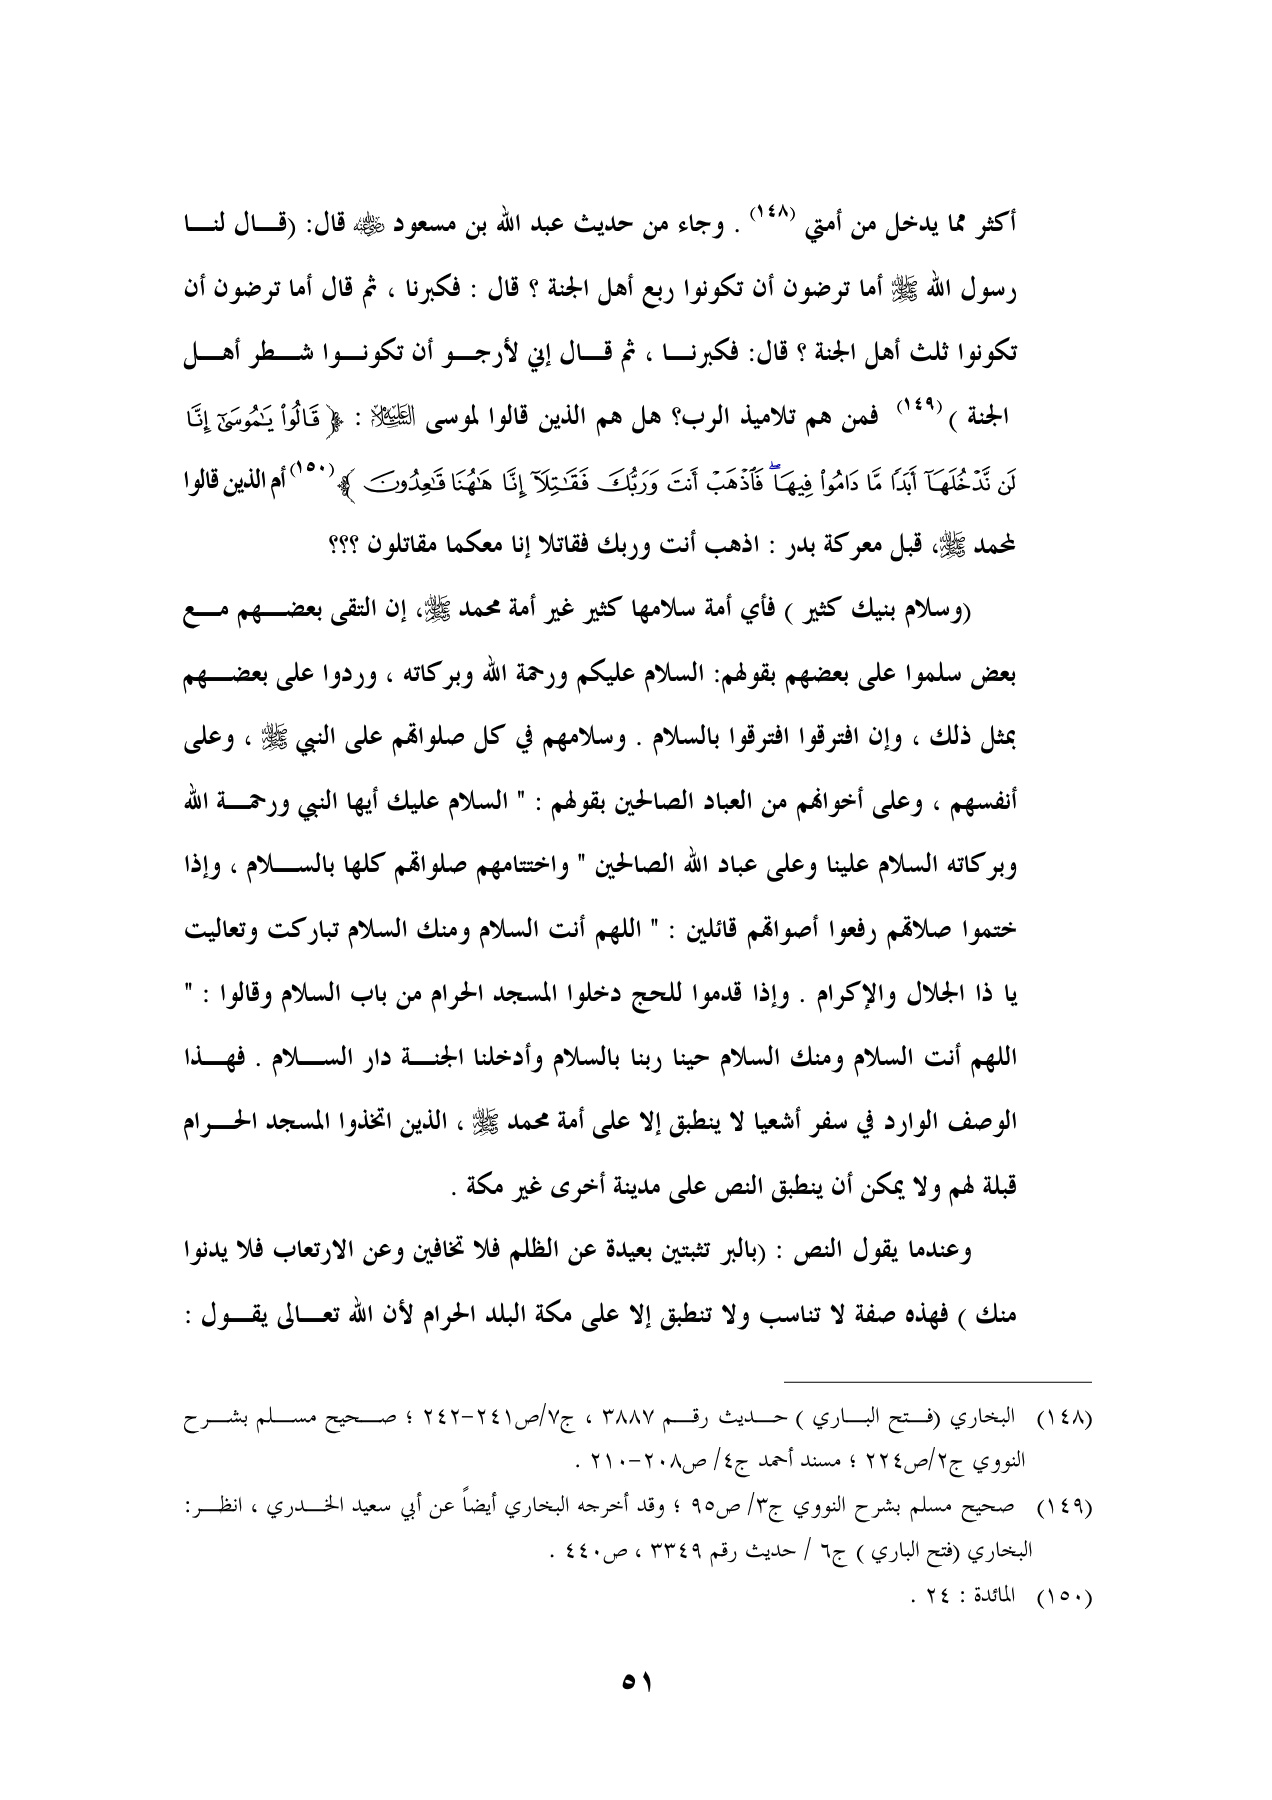 أكثر مما يدخل من أمتي (١٤٨) . وجاء من حديث عبد الله بن مسعود ﵁ قال: (قـــال لنـــا
رسول الله ﷺ أما ترضون أن تكونوا ربع أهل الجنة ؟ قال : فكبرنا ، ثم قال أما ترضون أن
تكونوا ثلث أهل الجنة ؟ قال: فكبرنـــا ، ثم قـــال إني لأرجـــو أن تكونـــوا شـــطر أهـــل
الجنة )(١٤٩) فمن هم تلاميذ الرب؟ هل هم الذين قالوا لموسى ﵇ : ﴿ قَالُوا۟ يَـٰمُوسَىٰٓ إِنَّا
لَن نَّدْخُلَهَآ أَبَدًا مَّا دَامُوا۟ فِيهَا ۖ فَٱذْهَبْ أَنتَ وَرَبُّكَ فَقَـٰتِلَآ إِنَّا هَـٰهُنَا قَـٰعِدُونَ ﴾(١٥٠) أم الذين قالوا
لمحمد ﷺ، قبل معركة بدر : اذهب أنت وربك فقاتلا إنا معكما مقاتلون ؟؟؟
(وسلام بنيك كثير ) فأي أمة سلامها كثير غير أمة محمد ﷺ، إن التقى بعضـــهم مـــع
بعض سلموا على بعضهم بقولهم: السلام عليكم ورحمة الله وبركاته ، وردوا على بعضـــهم
بمثل ذلك ، وإن افترقوا افترقوا بالسلام . وسلامهم في كل صلواتهم على النبي ﷺ ، وعلى
أنفسهم ، وعلى أخوانهم من العباد الصالحين بقولهم : " السلام عليك أيها النبي ورحمـــة الله
وبركاته السلام علينا وعلى عباد الله الصالحين " واختتامهم صلواتهم كلها بالســـلام ، وإذا
ختموا صلاتهم رفعوا أصواتهم قائلين : " اللهم أنت السلام ومنك السلام تباركت وتعاليت
يا ذا الجلال والإكرام . وإذا قدموا للحج دخلوا المسجد الحرام من باب السلام وقالوا : "
اللهم أنت السلام ومنك السلام حينا ربنا بالسلام وأدخلنا الجنـــة دار الســـلام . فهـــذا
الوصف الوارد في سفر أشعيا لا ينطبق إلا على أمة محمد ﷺ ، الذين اتخذوا المسجد الحـــرام
قبلة لهم ولا يمكن أن ينطبق النص على مدينة أخرى غير مكة .
وعندما يقول النص : (بالبر تثبتين بعيدة عن الظلم فلا تخافين وعن الارتعاب فلا يدنوا
منك ) فهذه صفة لا تناسب ولا تنطبق إلا على مكة البلد الحرام لأن الله تعـــالى يقـــول :
(١٤٨) البخاري (فـــتح البـــاري ) حـــديث رقـــم ٣٨٨٧ ، ج٧/ص٢٤١-٢٤٢ ؛ صـــحيح مســـلم بشـــرح
النووي ج٢/ص٢٢٤ ؛ مسند أحمد ج٤/ ص٢٠٨-٢١٠ .
(١٤٩) صحيح مسلم بشرح النووي ج٣/ ص٩٥ ؛ وقد أخرجه البخاري أيضاً عن أبي سعيد الخـــدري ، انظـــر:
البخاري (فتح الباري ) ج٦ / حديث رقم ٣٣٤٩ ، ص٤٤٠ .
(١٥٠) المائدة : ٢٤ .
٥١